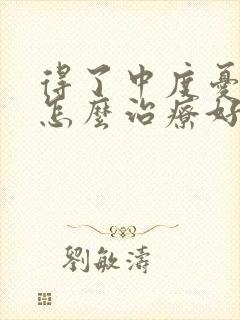 得了中度憂
怎麼治療好
劉敏濤